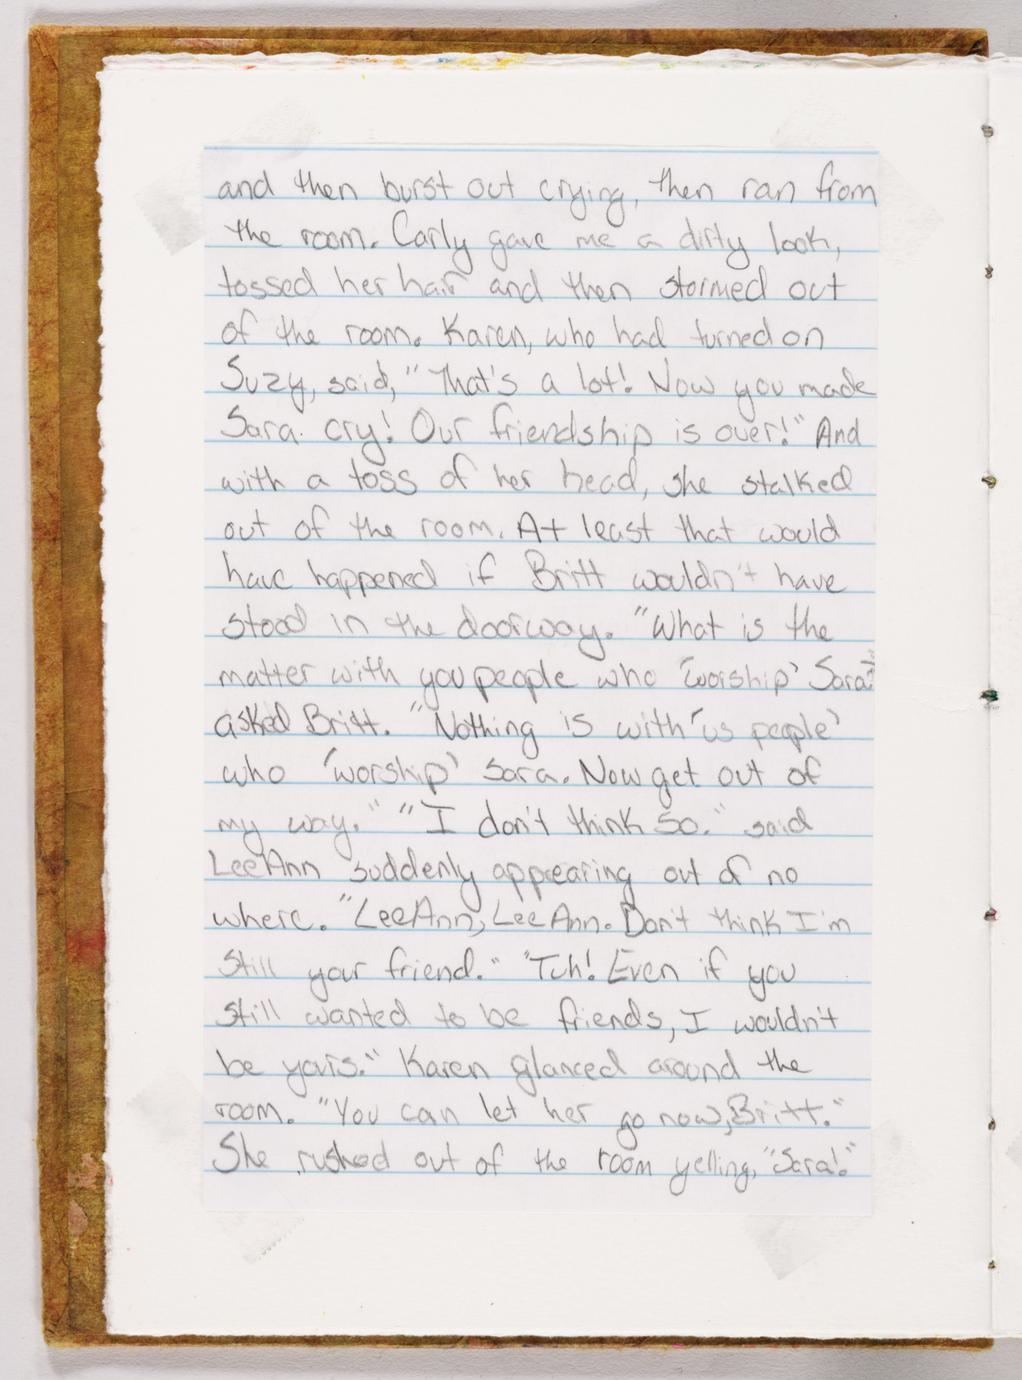 and then burst out crying, then ran from
the room. Carly gave me a dirty look,
tossed her hair and then stormed out
of the room. Karen, who had turned on
Suzy, said, "That's a lot! Now you made
Sara cry! Our friendship is over!" And
with a toss of her head, she stalked
out of the room. At least that would
have happened if Britt wouldn't have
stood in the doorway. "What is the
matter with you people who 'worship' Sara?"
asked Britt. "Nothing is with 'us people'
who 'worship' Sara. Now get out of
my way." "I don't think so." said
LeeAnn suddenly appearing out of no
where. "LeeAnn, LeeAnn. Don't think I'm
still your friend." "Tuh! Even if you
still wanted to be friends, I wouldn't
be yours." Karen glanced around the
room. "You can let her go now, Britt."
She rushed out of the room yelling, "Sara!"